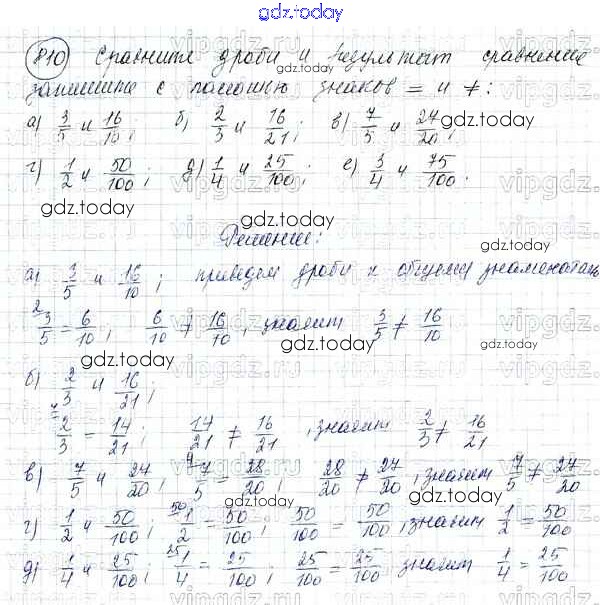 gdz.today
810 Сравните дроби и результат сравнения
запишите с помощью знаков = и ≠:
а) 3/5 и 16/10; б) 2/3 и 16/21; в) 7/5 и 27/20;
г) 1/2 и 50/100; д) 1/4 и 25/100; е) 3/4 и 75/100.
Решение:
а) 3/5 и 16/10; приведем дроби к общему знаменателю
3/5 = 6/10; 6/10 ≠ 16/10, значит 3/5 ≠ 16/10
б) 2/3 и 16/21;
2/3 = 14/21; 14/21 ≠ 16/21, значит 2/3 ≠ 16/21
в) 7/5 и 27/20; 7/5 = 28/20; 28/20 ≠ 27/20, значит 7/5 ≠ 27/20
г) 1/2 и 50/100; 1/2 = 50/100; 50/100 = 50/100, значит 1/2 = 50/100
д) 1/4 и 25/100; 1/4 = 25/100; 25/100 = 25/100 значит 1/4 = 25/100